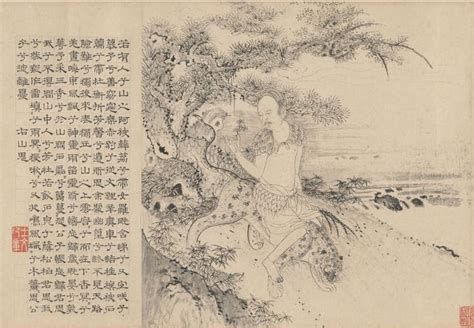 若有人兮山之阿被薜荔兮帶女羅既含睇兮又宜笑子
慕予兮善窈窕乘赤豹兮從文貍辛夷車兮結桂旗被石
蘭兮帶杜衡折芳馨兮遺所思余處幽篁兮終不見天路
險難兮獨後來表獨立兮山之上雲容容兮而在下杳冥冥兮
羌晝晦東風飄兮神靈雨留靈脩兮憺忘歸歲既晏兮孰
華予采三秀兮於山間石磊磊兮葛蔓蔓怨公子兮悵忘歸君思
我兮不得閒山中人兮芳杜若飲石泉兮蔭松柏君思我
兮然疑作靁填填兮雨冥冥猨啾啾兮狖夜鳴風颯颯兮木蕭蕭思公
子兮徒離憂
右山鬼